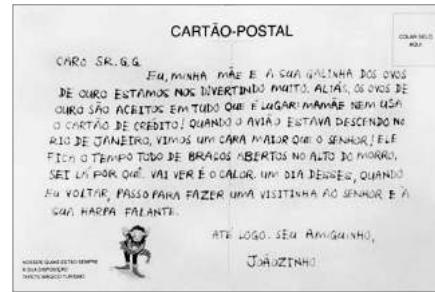 CARTÃO-POSTAL
COLAR SELO
AQUI
CARO SR. G.G.
EU, MINHA MÃE E A SUA GALINHA DOS OVOS
DE OURO ESTAMOS NOS DIVERTINDO MUITO. ALIÁS, OS OVOS DE
OURO SÃO ACEITOS EM TUDO QUE É LUGAR! MAMÃE NEM USA
O CARTÃO DE CRÉDITO! QUANDO O AVIÃO ESTAVA DESCENDO NO
RIO DE JANEIRO, VIMOS UM CARA MAIOR QUE O SENHOR! ELE
FICA O TEMPO TODO DE BRAÇOS ABERTOS NO ALTO DO MORRO,
SEI LÁ POR QUÊ. VAI VER É O CALOR. UM DIA DESSES, QUANDO
EU VOLTAR, PASSO PARA FAZER UMA VISITINHA AO SENHOR E À
SUA HARPA FALANTE.
ATÉ LOGO. SEU AMIGUINHO,
JOÃOZINHO
NOSSOS GUIAS ESTÃO SEMPRE
À SUA DISPOSIÇÃO
TAPETE MÁGICO TURISMO